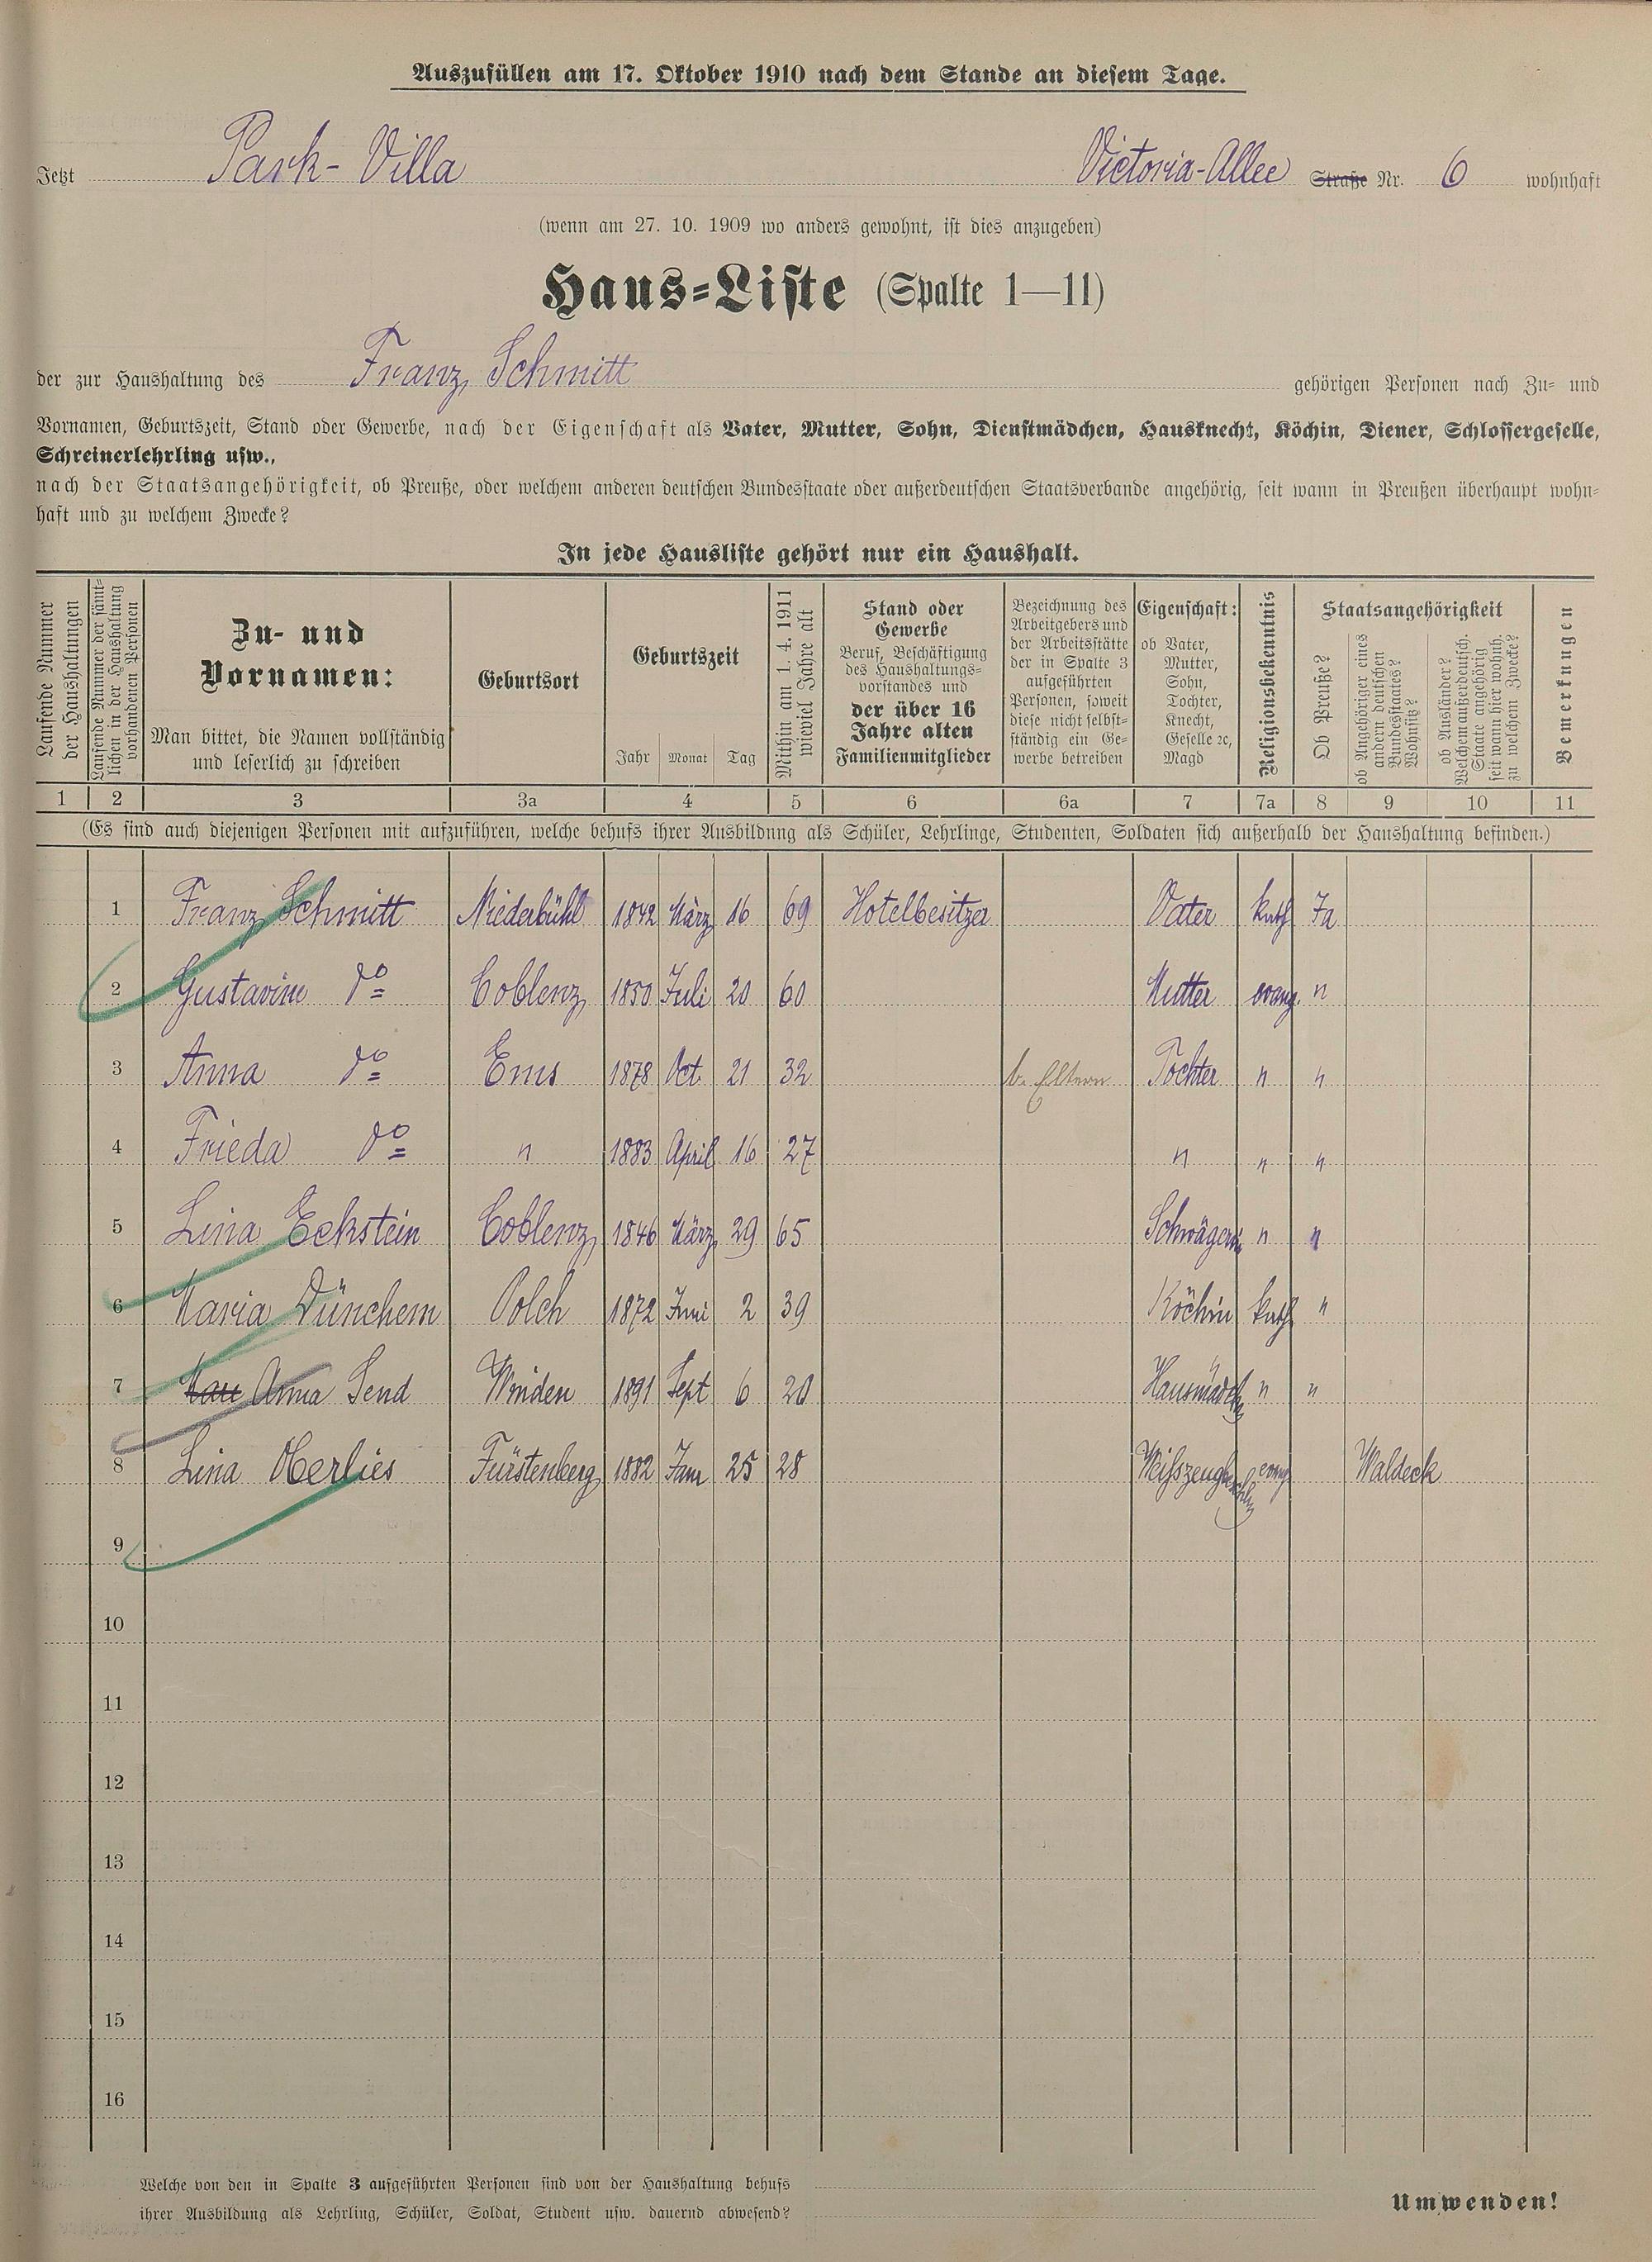 Auszufüllen am 17. Oktober 1910 nach dem Stande an diesem Tage.
Jetzt Park-Villa Victoria-Allee Straße Nr. 6 wohnhaft
(wenn am 27. 10. 1909 wo anders gewohnt, ist dies anzugeben)
Haus-Liste (Spalte 1—11)
der zur Haushaltung des Franz Schmitt gehörigen Personen nach Zu- und
Vornamen, Geburtszeit, Stand oder Gewerbe, nach der Eigenschaft als Vater, Mutter, Sohn, Dienstmädchen, Hausknecht, Köchin, Diener, Schlossergeselle,
Schreinerlehrling usw.,
nach der Staatsangehörigkeit, ob Preuße, oder welchem anderen deutschen Bundesstaate oder außerdeutschen Staatsverbande angehörig, seit wann in Preußen überhaupt wohn-
haft und zu welchem Zwecke?
In jede Hausliste gehört nur ein Haushalt.
Laufende Nummer
der Haushaltungen
Laufende Nummer der sämt-
lichen in der Haushaltung
vorhandenen Personen
Zu- und
Vornamen:
Man bittet, die Namen vollständig
und leserlich zu schreiben
Geburtsort
Geburtszeit
Jahr Monat Tag
Mithin am 1. 4. 1911
wieviel Jahre alt
Stand oder
Gewerbe
Beruf, Beschäftigung
des Haushaltungs-
vorstandes und
der über 16
Jahre alten
Familienmitglieder
Bezeichnung des
Arbeitgebers und
der Arbeitsstätte
der in Spalte 3
aufgeführten
Personen, soweit
diese nicht selbst-
ständig ein Ge-
werbe betreiben
Eigenschaft:
ob Vater,
Mutter,
Sohn,
Tochter,
Knecht,
Geselle ꝛc,
Magd
Religionsbekenntnis
Staatsangehörigkeit
Ob Preuße?
ob Angehöriger eines
andern deutschen
Bundesstaates?
Wohnsitz?
ob Ausländer?
Welchem außerdeutsch.
Staate angehörig
seit wann hier wohnh.
zu welchem Zwecke?
Bemerkungen
1 2 3 3a 4 5 6 6a 7 7a 8 9 10 11
(Es sind auch diejenigen Personen mit aufzuführen, welche behufs ihrer Ausbildung als Schüler, Lehrlinge, Studenten, Soldaten sich außerhalb der Haushaltung befinden.)
1 Franz Schmitt Niederbühl 1842 März 16 69 Hotelbesitzer Vater kath Ja
2 Gustavine do Coblenz 1850 Juli 20 60 Mutter evang. "
3 Anna do Ems 1878 Oct. 21 32 b. Eltern Tochter " "
4 Frieda do " 1883 April 16 27 " " "
5 Lina Eckstein Coblenz 1846 März 29 65 Schwägerin " "
6 Maria Dünchem Polch 1872 Juni 2 39 Köchin kath "
7 Anna Send Winden 1891 Sept 6 20 Hausmädch " "
8 Lina Oberlies Fürstenberg 1882 Jan 25 28 evang Waldeck
9
10
11
12
13
14
15
16
Welche von den in Spalte 3 aufgeführten Personen sind von der Haushaltung behufs
ihrer Ausbildung als Lehrling, Schüler, Soldat, Student usw. dauernd abwesend?
Umwenden!